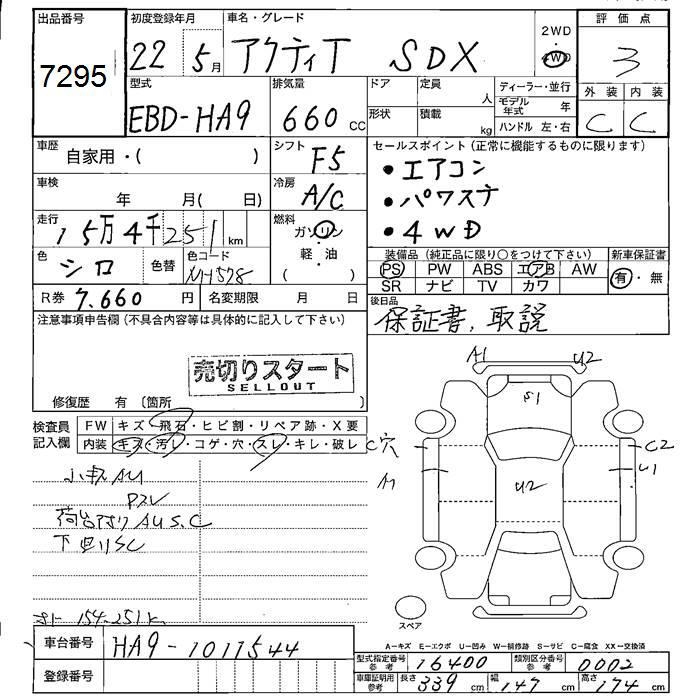 出品番号 初度登録年月 車名・グレード 2WD 評価点
7295 22 5月 アクティT SDX 4WD 3
型式 排気量 ドア 定員 人 ディーラー・並行 外装 内装
EBD-HA9 660cc 形状 積載 kg モデル年式 年 C C
ハンドル 左・右
車歴 自家用・( ) シフト F5 セールスポイント(正常に機能するものに限ります)
車検 年 月( 日) 冷房 A/C
・エアコン
・パワステ
・4WD
走行 15万4千251km 燃料 ガソリン 軽・油 ( )
色 シロ 色替 色コード NH-578
装備品(純正品に限り○をつけて下さい) 新車保証書
PS PW ABS エアB AW 有・無
SR ナビ TV カワ
R券 7.660円 名変期限 月 日 後日品
保証書,取説
注意事項申告欄(不具合内容等は具体的に記入して下さい)
売切りスタート
SELLOUT
修復歴 有(箇所 )
検査員記入欄 FW キズ・飛石・ヒビ割・リペア跡・X要
内装 キズ・汚レ・コゲ・穴・スレ・キレ・破レ
AU
荷台 AU S.C
下廻りSC
154-251k
A1 U2
S1
C穴 C2
A1 U1
U2
スペア
A-キズ E-エクボ U-凹み W-補修跡 S-サビ C-腐食 XX-交換済
車台番号 HA9-1011544
型式指定番号 参考 16400 類別区分番号 参考 0002
登録番号
車庫証明用 参考 長さ 339cm 幅 147cm 高さ 174cm